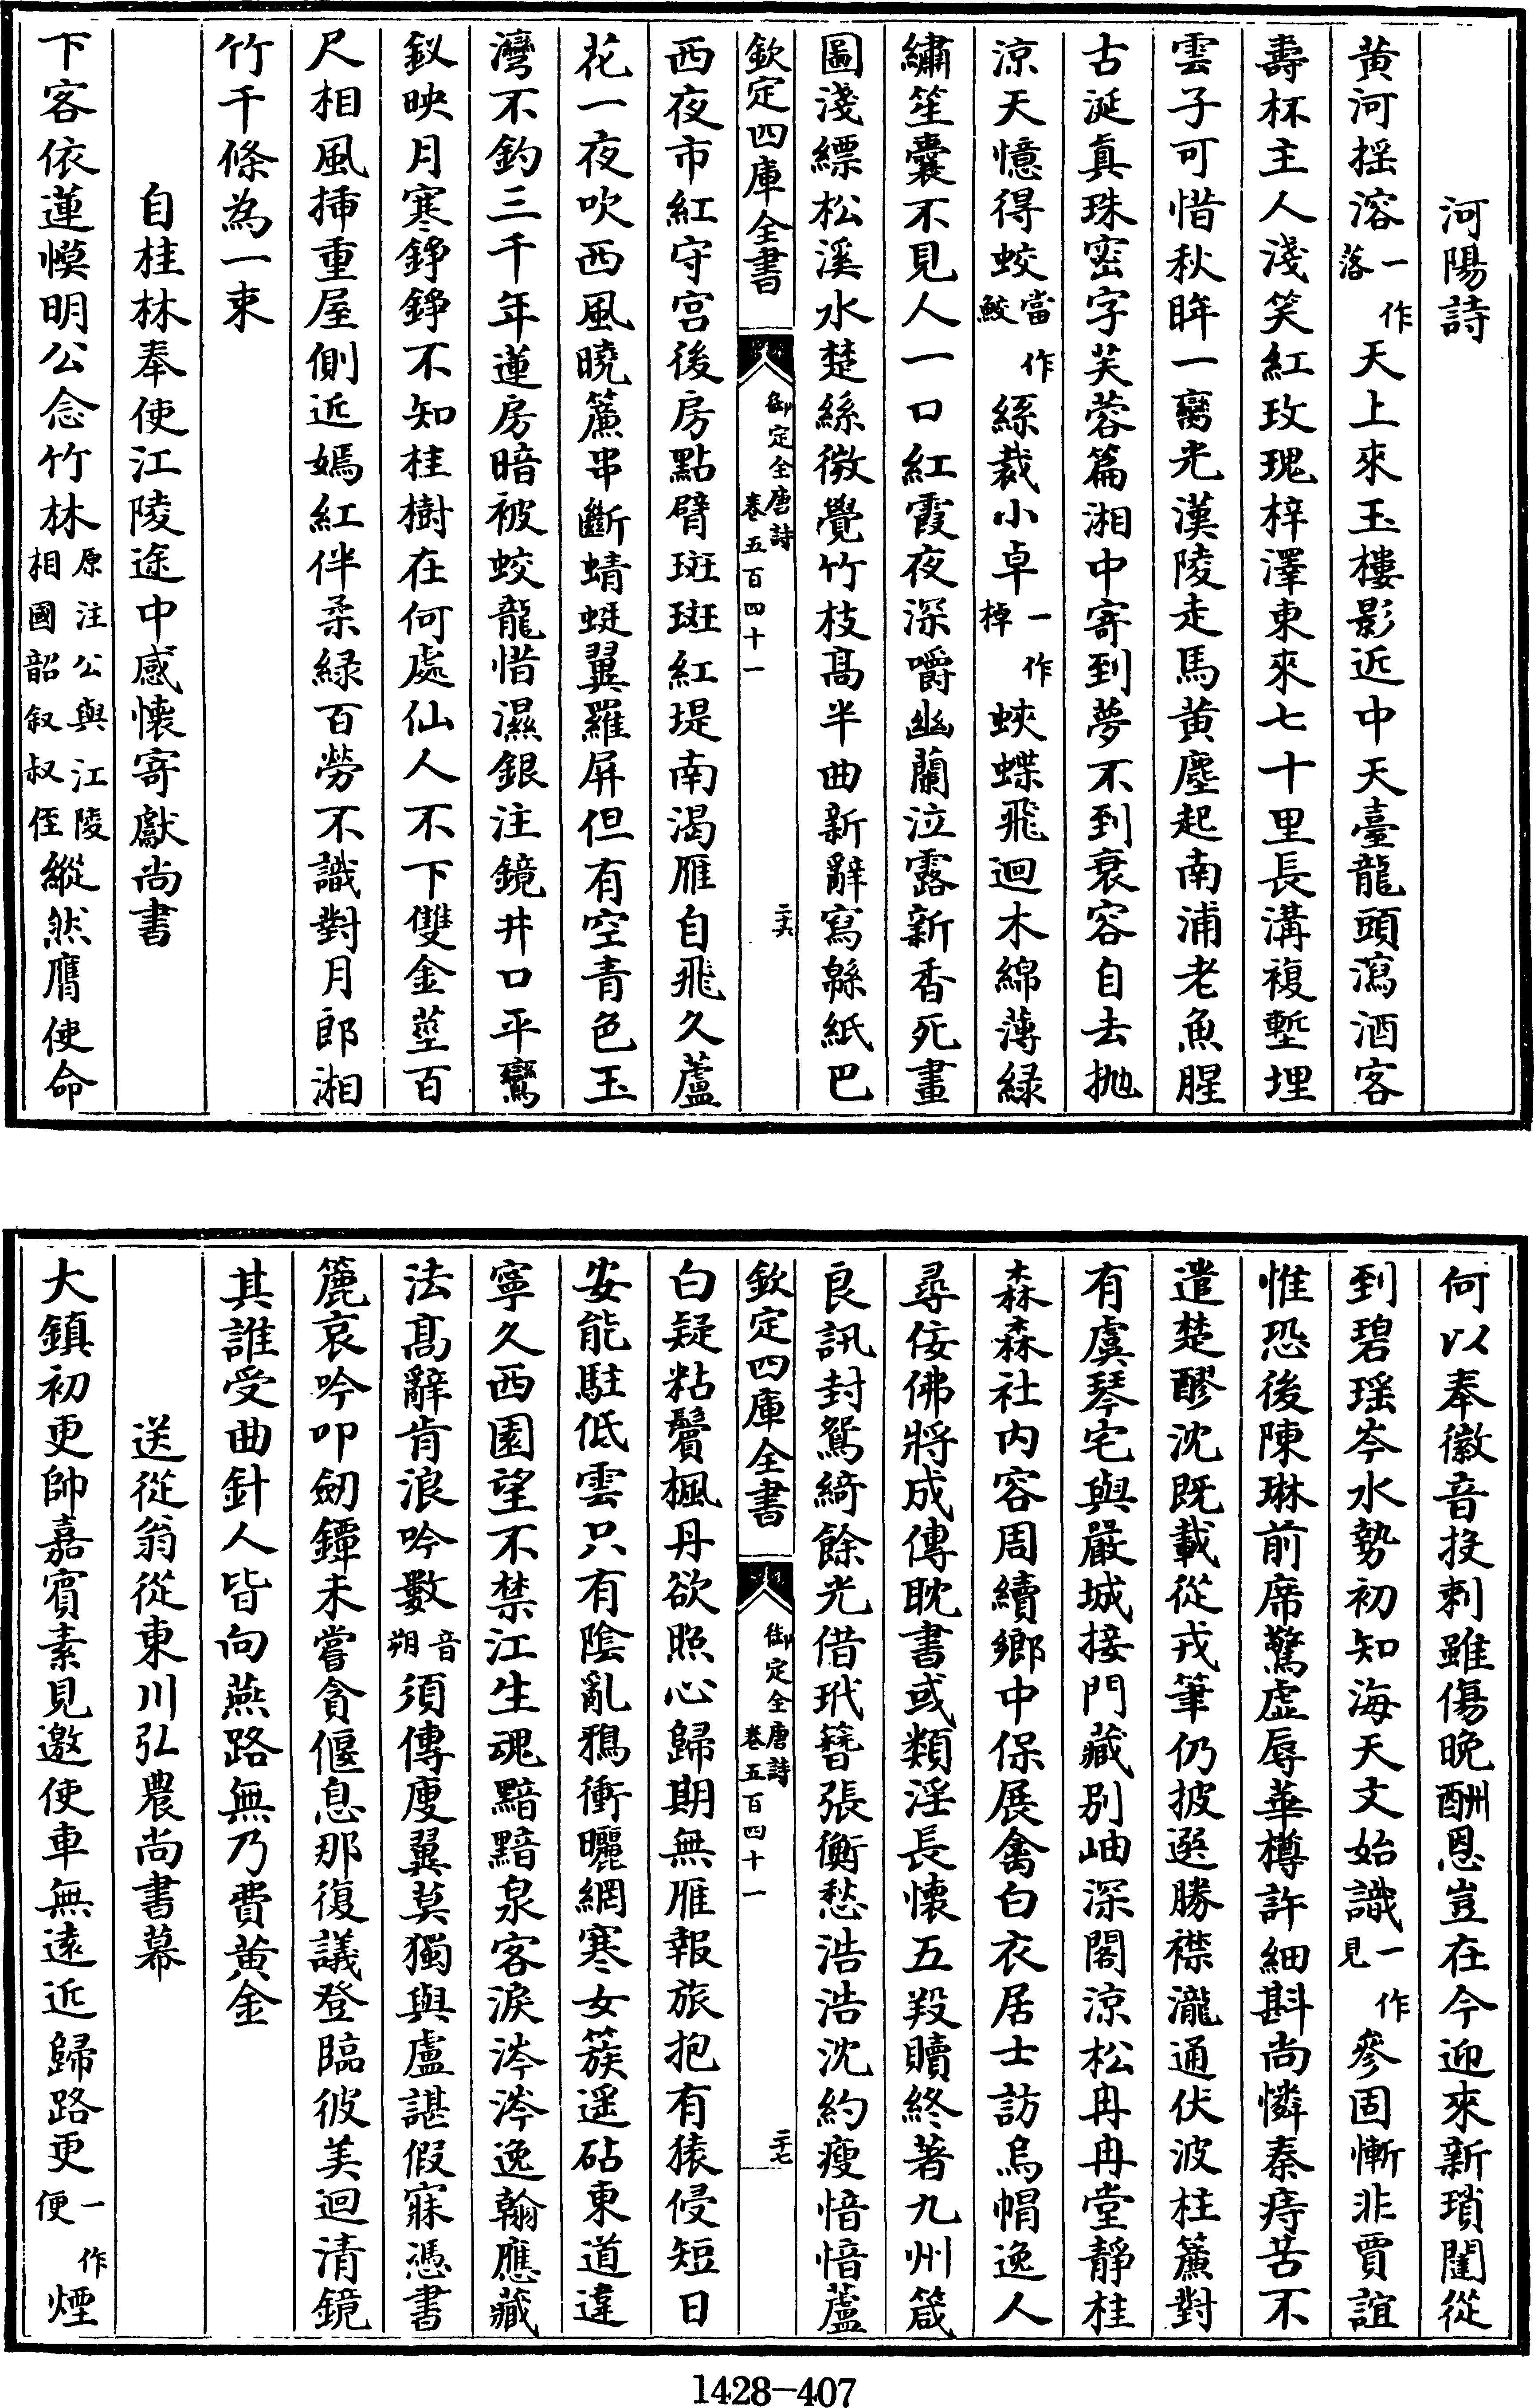 河陽詩
黄河揺溶一作落天上來玉樓影近中天臺龍頭瀉酒客
壽杯主人淺笑紅玫瑰梓澤東來七十里長溝複塹埋
雲子可惜秋眸一臠光漢陵走馬黄塵起南浦老魚腥
古涎真珠密字芙蓉篇湘中寄到夢不到衰容自去抛
涼天憶得蛟當作鮫絲裁小卓一作棹蛺蝶飛迴木綿薄緑
繡笙囊不見人一口紅霞夜深嚼幽蘭泣露新香死畫
圖淺縹松溪水楚絲微覺竹枝髙半曲新辭寫緜紙巴
欽定四庫全書 御定全唐詩卷五百四十一 二十六
西夜市紅守宫後房點臂斑斑紅堤南渴雁自飛久蘆
花一夜吹西風曉簾串斷蜻蜓翼羅屏但有空青色玉
灣不釣三千年蓮房暗被蛟龍惜濕銀注鏡井口平鸞
釵映月寒錚錚不知桂樹在何處仙人不下雙金莖百
尺相風揷重屋側近嫣紅伴柔緑百勞不識對月郎湘
竹千條為一束
自桂林奉使江陵途中感懷寄獻尚書
下客依蓮幙明公念竹林原注公與江陵相國韶叙叔侄縱然膺使命
何以奉徽音投刺雖傷晚酬恩豈在今迎來新瑣闥從
到碧瑶岑水勢初知海天文始識一作見參固慚非賈誼
惟恐後陳琳前席驚虚辱華樽許細斟尚憐秦痔苦不
遣楚醪沈既載從戎筆仍披選勝襟瀧通伏波柱簾對
有虞琴宅與嚴城接門藏别岫深閣涼松冉冉堂靜桂
森森社内容周續鄉中保展禽白衣居士訪烏帽逸人
尋佞佛將成傳耽書或類淫長懷五羖贖終著九州箴
良訊封鴛綺餘光借玳簪張衡愁浩浩沈約瘦愔愔蘆
欽定四庫全書 御定全唐詩卷五百四十一 二十七
白疑粘鬢楓丹欲照心歸期無雁報旅抱有猿侵短日
安能駐低雲只有隂亂鴉衝曬網寒女簇遥砧東道違
寧久西園望不禁江生魂黯黯泉客淚涔涔逸翰應藏
法髙辭肯浪吟數音朔須傳庾翼莫獨與盧諶假寐憑書
簏哀吟叩劒鐔未嘗貪偃息那復議登臨彼美迴清鏡
其誰受曲針人皆向燕路無乃費黄金
送從翁從東川弘農尚書幕
大鎮初更帥嘉賓素見邀使車無遠近歸路更一作便煙
1428-407